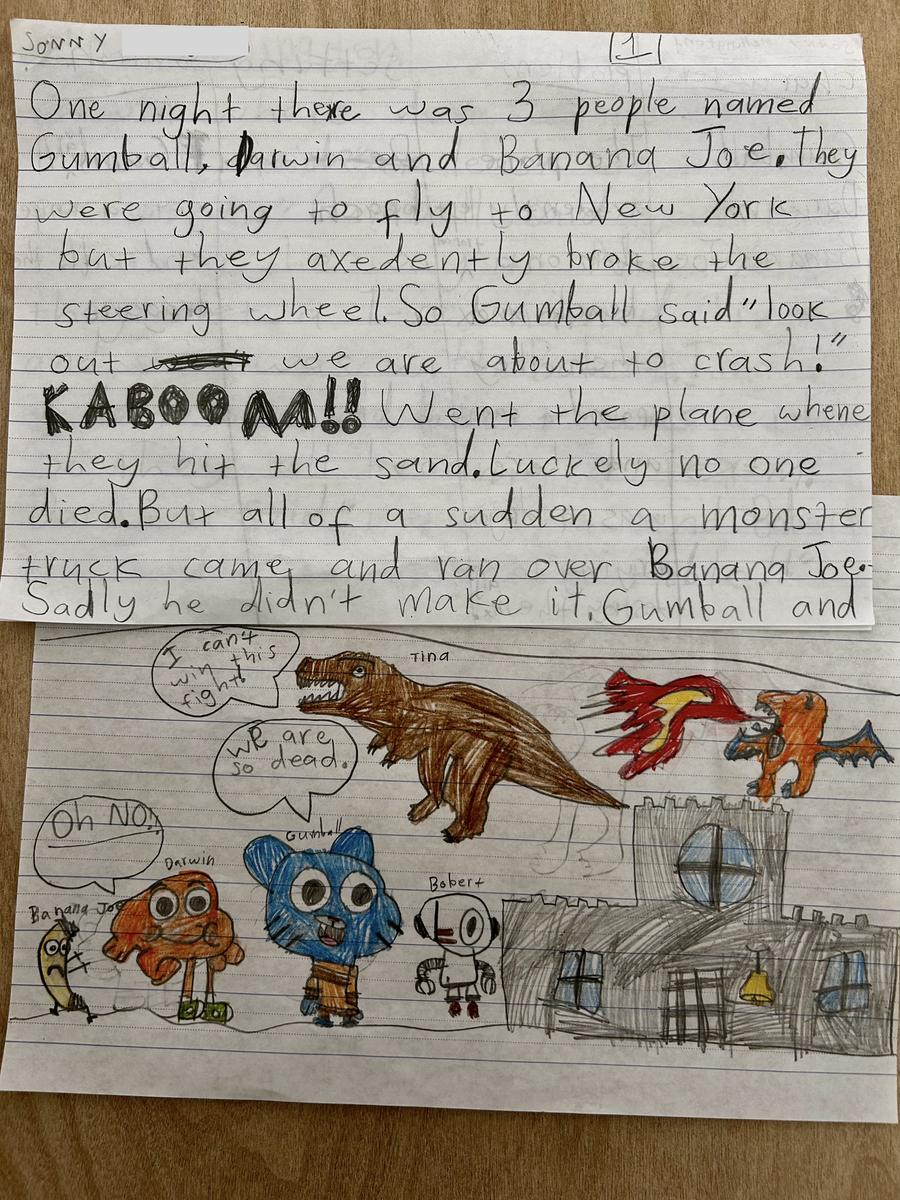 SONNY
1
One night there was 3 people named
Gumball, Darwin and Banana Joe. They
were going to fly to New York
but they axedently broke the
steering wheel. So Gumball said "look
out we are about to crash!"
KABOOM!! Went the plane whene
they hit the sand. Luckely no one
died. But all of a sudden a monster
truck came and ran over Banana Joe.
Sadly he didn't make it. Gumball and
I can't
win this
fight!
Tina
We are
so dead.
Oh NO!!
Gumball
Darwin
Bobert
Banana Joe